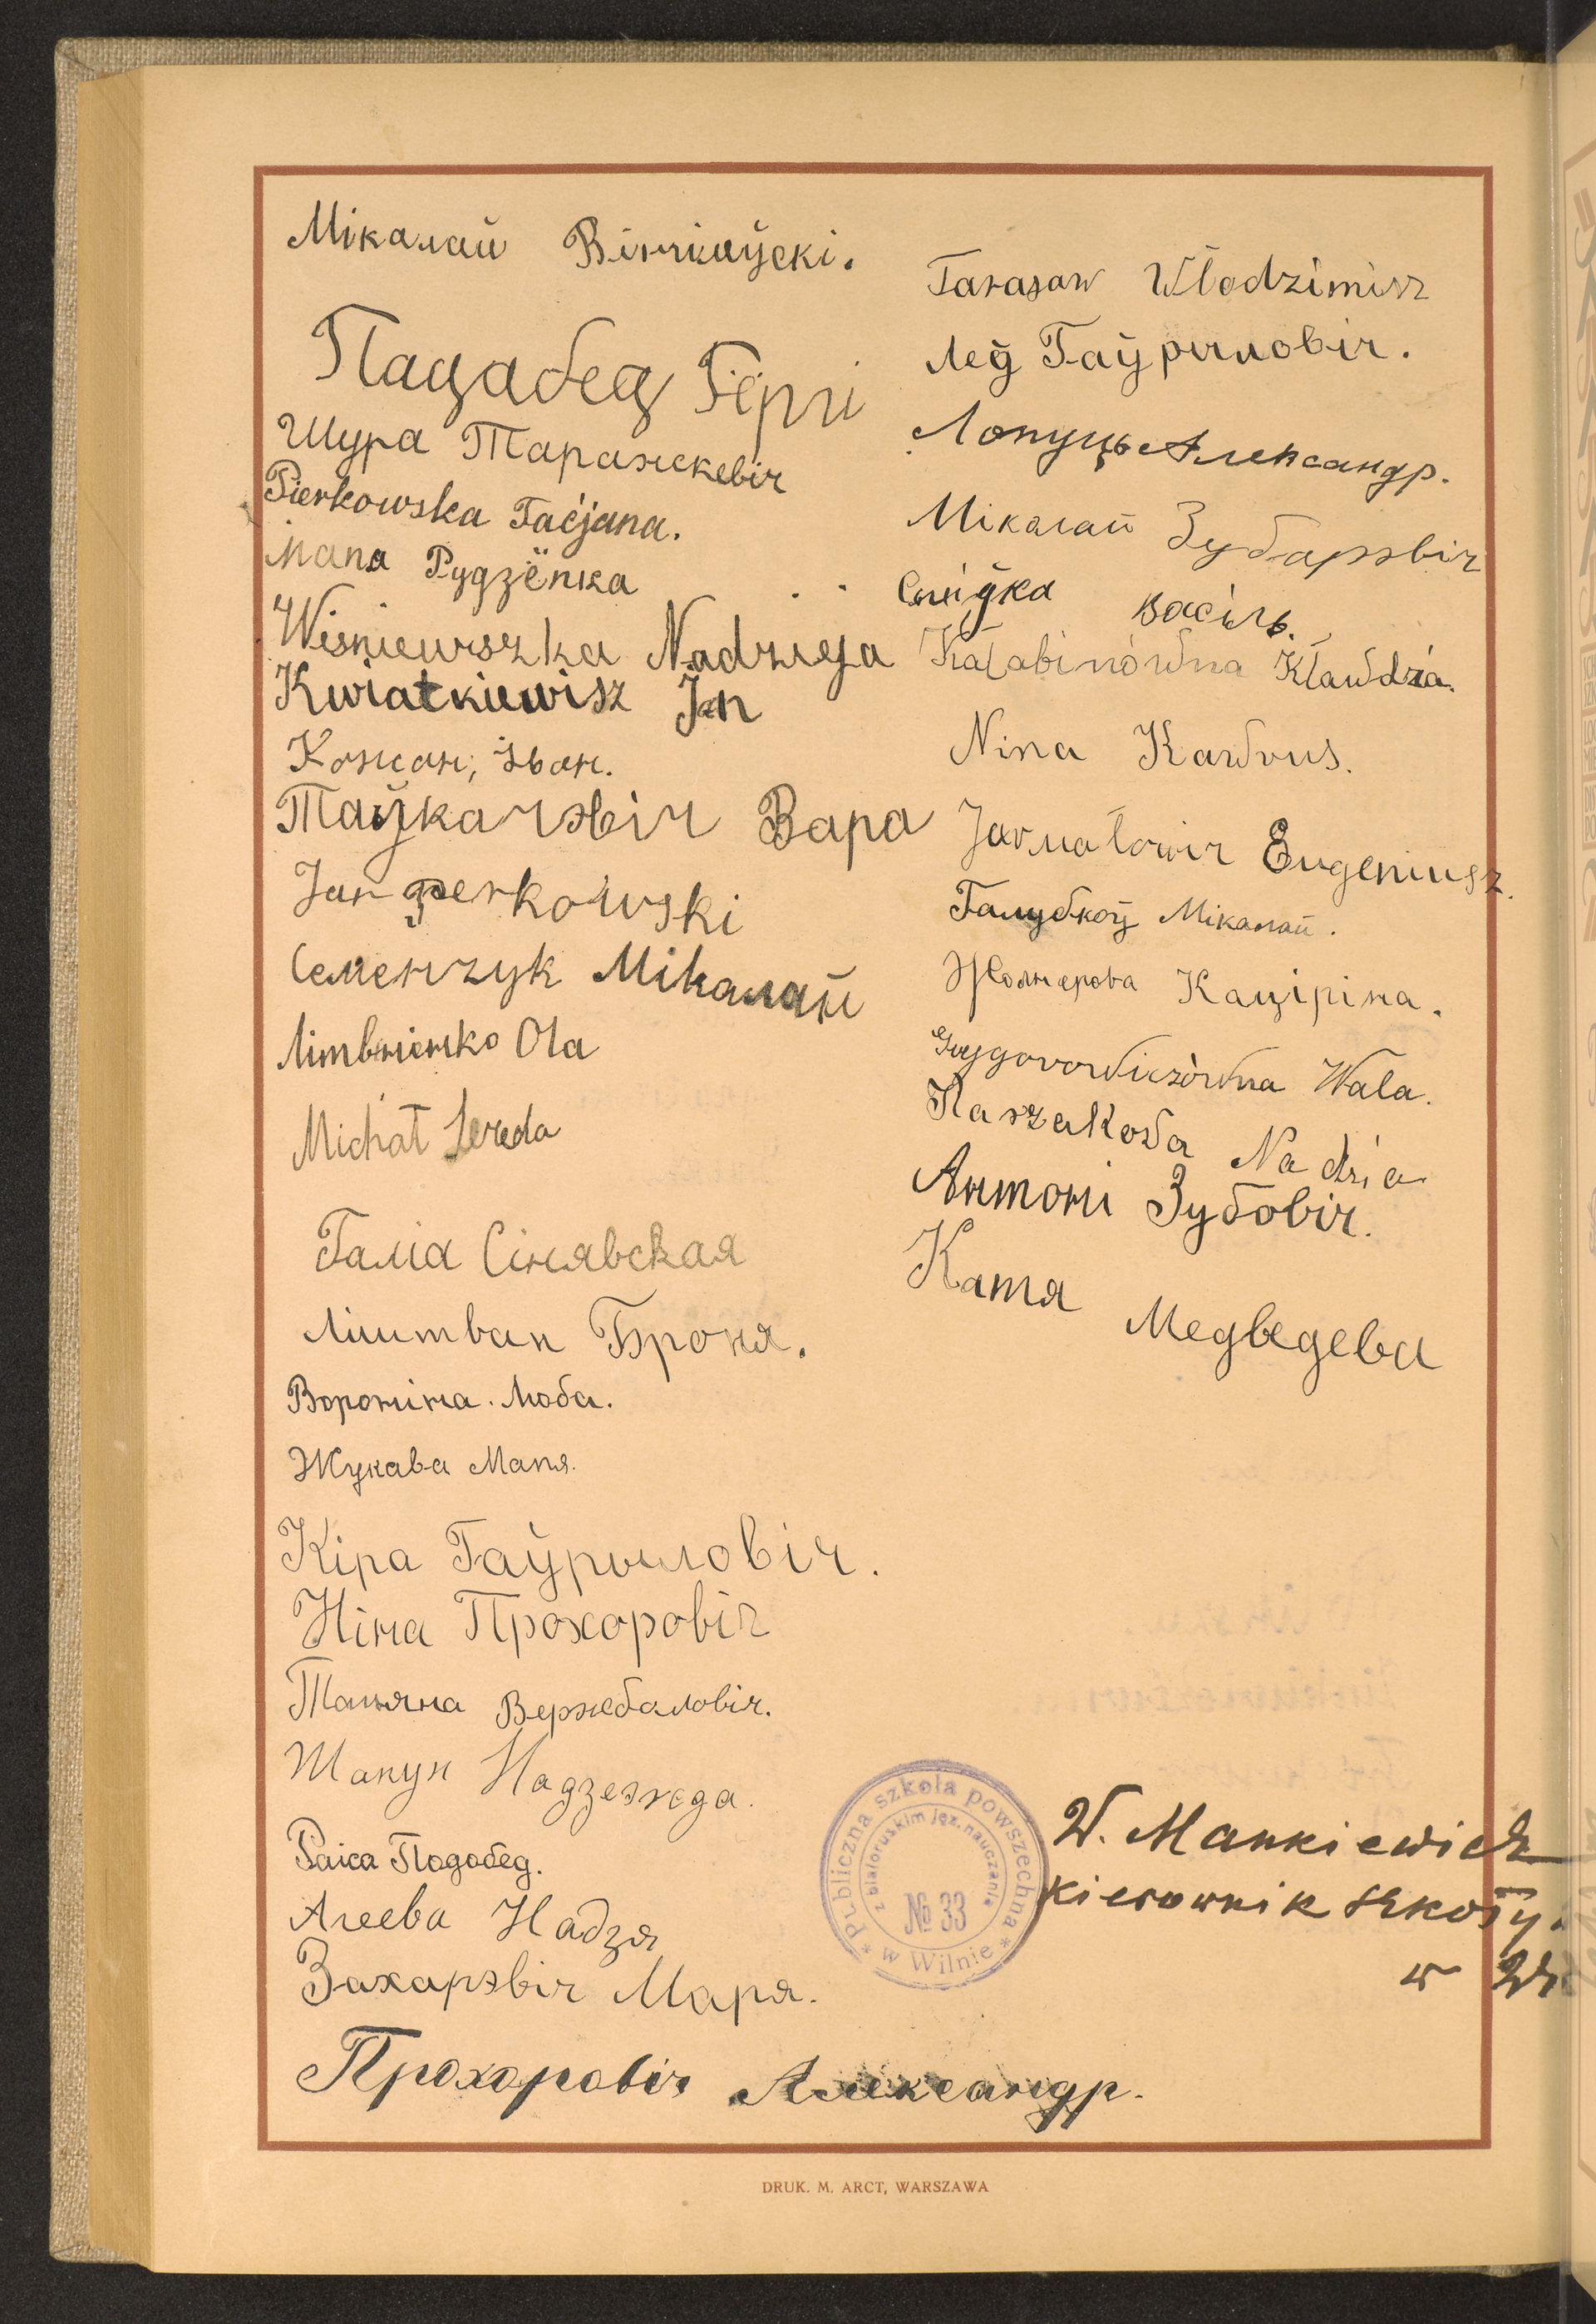 Мікалай Вінчэўскі.
Падабед Гёргі
Шура Тарашкевіч
Pierkowska Taćjana.
Маня Рудзёнка
Wisniewszka Nadzieja
Kwiatkiewisz Jan
Кожан, Іван.
Таўкачэвіч Вара
Jan Perkowski
Семенчук Мікалай
Літвіненко Ola
Michał Sereda
Галіа Сінявская
Лиитван Броня.
Воронина. Люба.
Жукава Маня.
Кіра Гаўрыловіч.
Ніна Прохоровіч
Тацяна Вержбаловіч.
Шакун Надзежда.
Раіса Подобед.
Агеева Надзя
Захарэвіч Маря.
Прохоровіч Александр.
Tarasaw Włodzimirz
Леў Гаўрыловіч.
Лопуць Александр.
Мікалай Зубарэвіч
Сліўка Васіль.
Kałabinówna Kławdzia.
Nina Kawrus.
Jarmałowicz Eugeniusz.
Галубкоў Мікалай.
Жолнерова Кацірина.
Grygorowiczówna Wala.
Kaszakowa Nadzia
Антони Зубовіч.
Катя Медведева
Publiczna szkoła powszechna w Wilnie
z białoruskim jęz. nauczania
№ 33
W. Mankiewicz
kierownik szkoły.
w
DRUK. M. ARCT, WARSZAWA